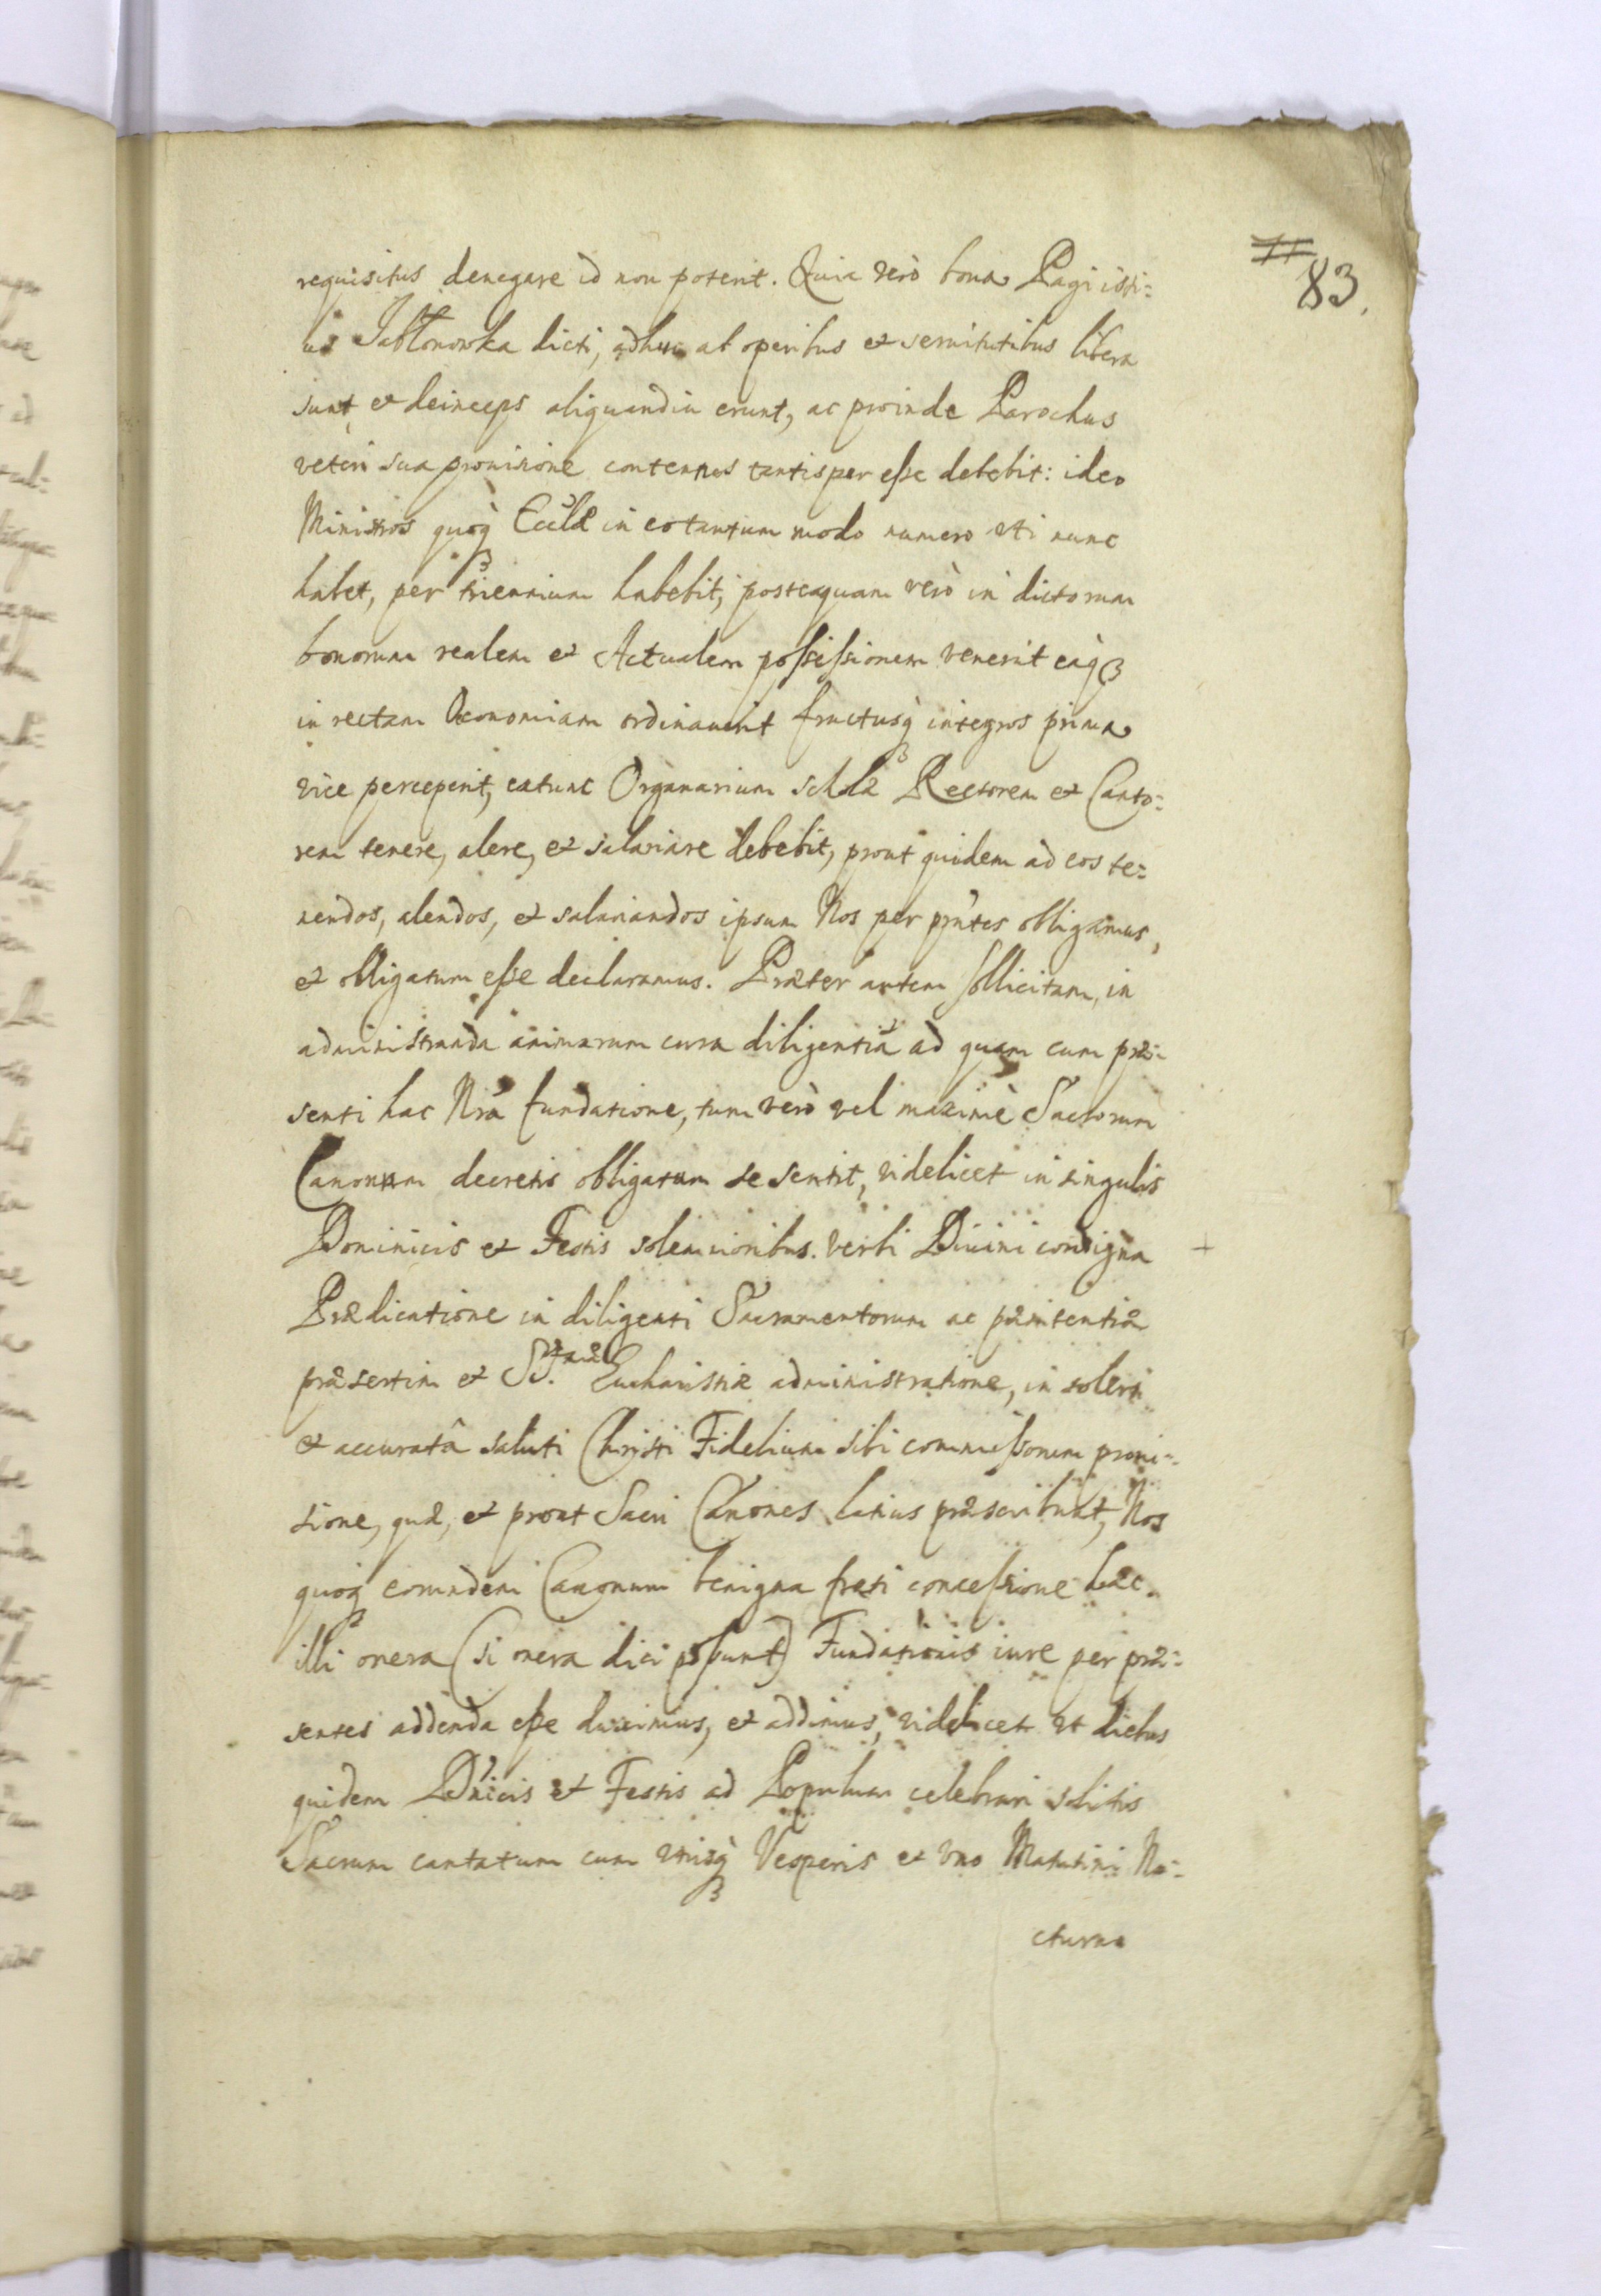 83.
requisitus denegare id non poterit. Quia verò bona Pagi isti:
us Jabłonowka dicti, adhuc ab operibus et servitutibus libera
sunt, et deinceps aliquandiu erunt, ac proinde Parochus
veteri sua provisione contentus tantisper esse debebit: ideo
Ministros quoq̀ Eccl̃æ in eo tantum modo numero uti nunc
habet, per triennium habebit, posteaquam verò in dictorum
bonorum realem et Actualem possessionem venerit eaq̃
in rectam Oeconomiam ordinauerit fructusq̀ integros prima
vice perceperit, extunc Organarium schlæ Rectorem et Canto:
rem tenere, alere, et salariare debebit, prout quidem ad eos te:
nendos, alendos, et salariandos ipsum Nos per pñtes obligamus,
et obligatum esse declaramus. Præter autem sollicitam, in
administranda animarum cura diligentiã ad quam cum præ:
senti hac Nr̃a fundatione, tum verò vel maximè Sacrorum
Canonum decretis obligatum se sentit, videlicet in singulis
Dominicis et Festis solemnioribus verbi Divini condigna +
Prædicatione in diligenti Sacramentorum ac pænitentiæ
præsertim et SS.mæ Eucharistiæ administratione, in solerti
et accuratâ saluti Christi Fidelium sibi commissorum provi:
sione, quæ, et prout Sacri Canones latius præscribunt, Nos
quoq̀ eorundem Canonum benigna freti concessione hæc
illi onera (si onera dici possunt) Fundationis iure per præ:
sentes addenda esse duximus, et addimus, videlicet ut diebus
quidem Dñicis et Festis ad Populum celebrari solitis
Sacrum cantatum cum utrisq̀ Vesperis et uno Matutini No:
cturno